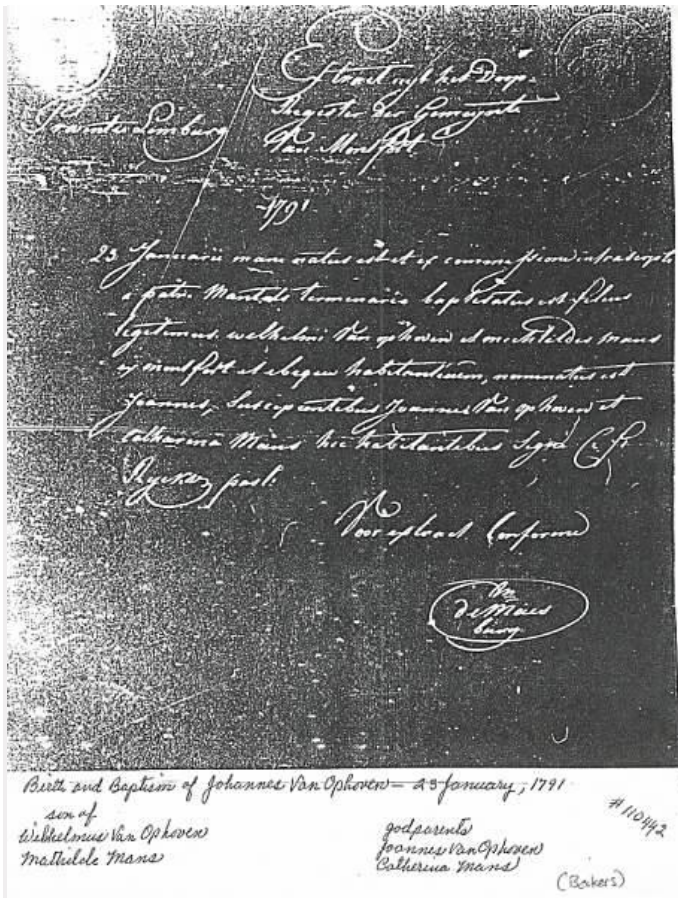 Extract uyt het Doop-
Register der Gemeynte
Van Montfort.
Provintie Limburg
1791
23 Januarii mane natus est et ex commissione infrascripti
a patre terminario baptisatus est filius
legitimus wilhelmi Van ophoven et mechtildis mans
ex montfort et habitantium, nominatus est
Joannes, Suscipientibus Joannes Van ophoven et
Catharina Mans hic habitantibus Signé C. f.
past.
Voor extract Conforme
de Maes
burg.
Birth and Baptism of Johannes Van Ophoven - 23 January, 1791
son of
Wilhelmus Van Ophoven
Mathilde Mans
godparents
Joannes Van Ophoven
Catherina Mans
# 110442
(Bakers)